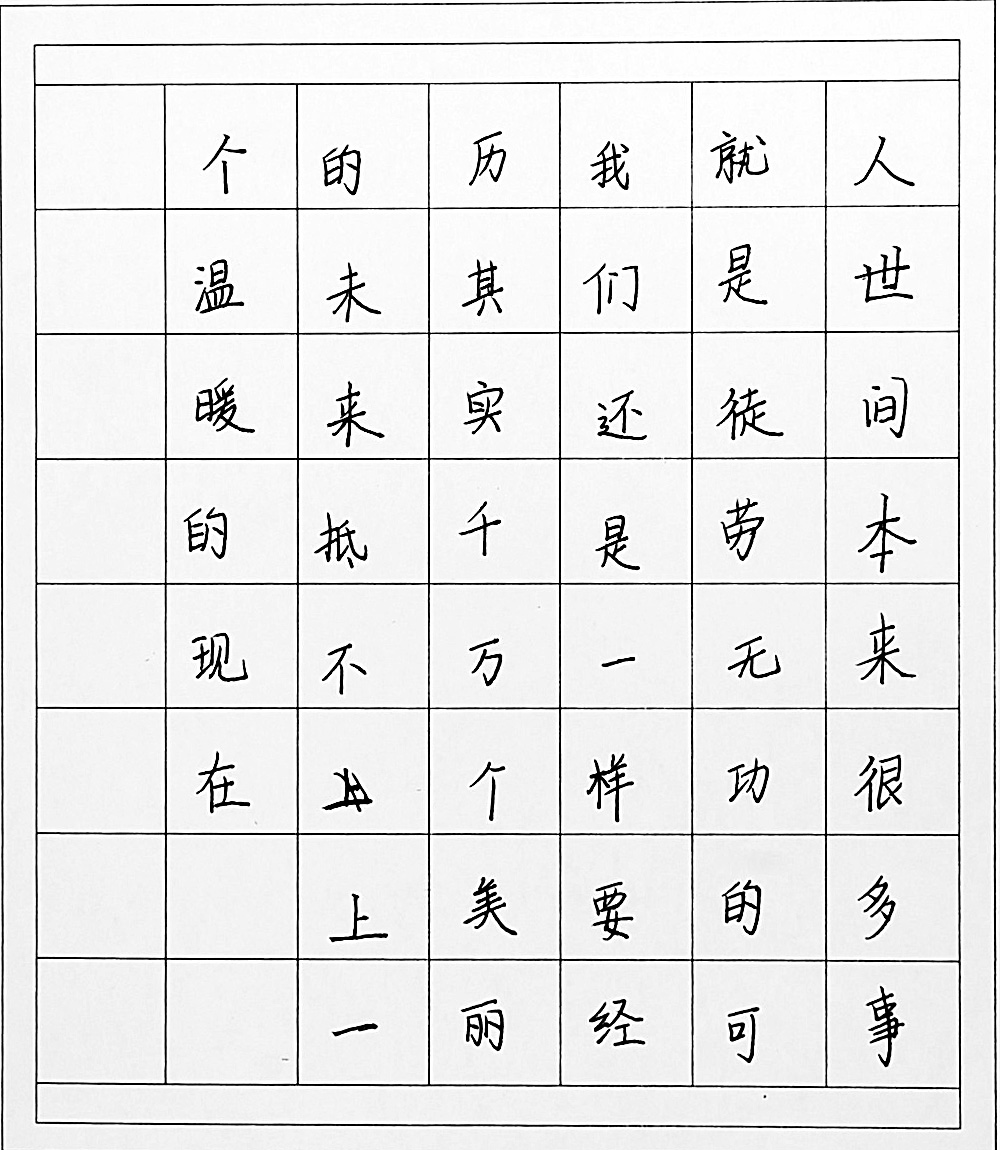 人世间本来很多事
就是徒劳无功的可
我们还是一样要经
历其实千万个美丽
的未来抵不上一
个温暖的现在